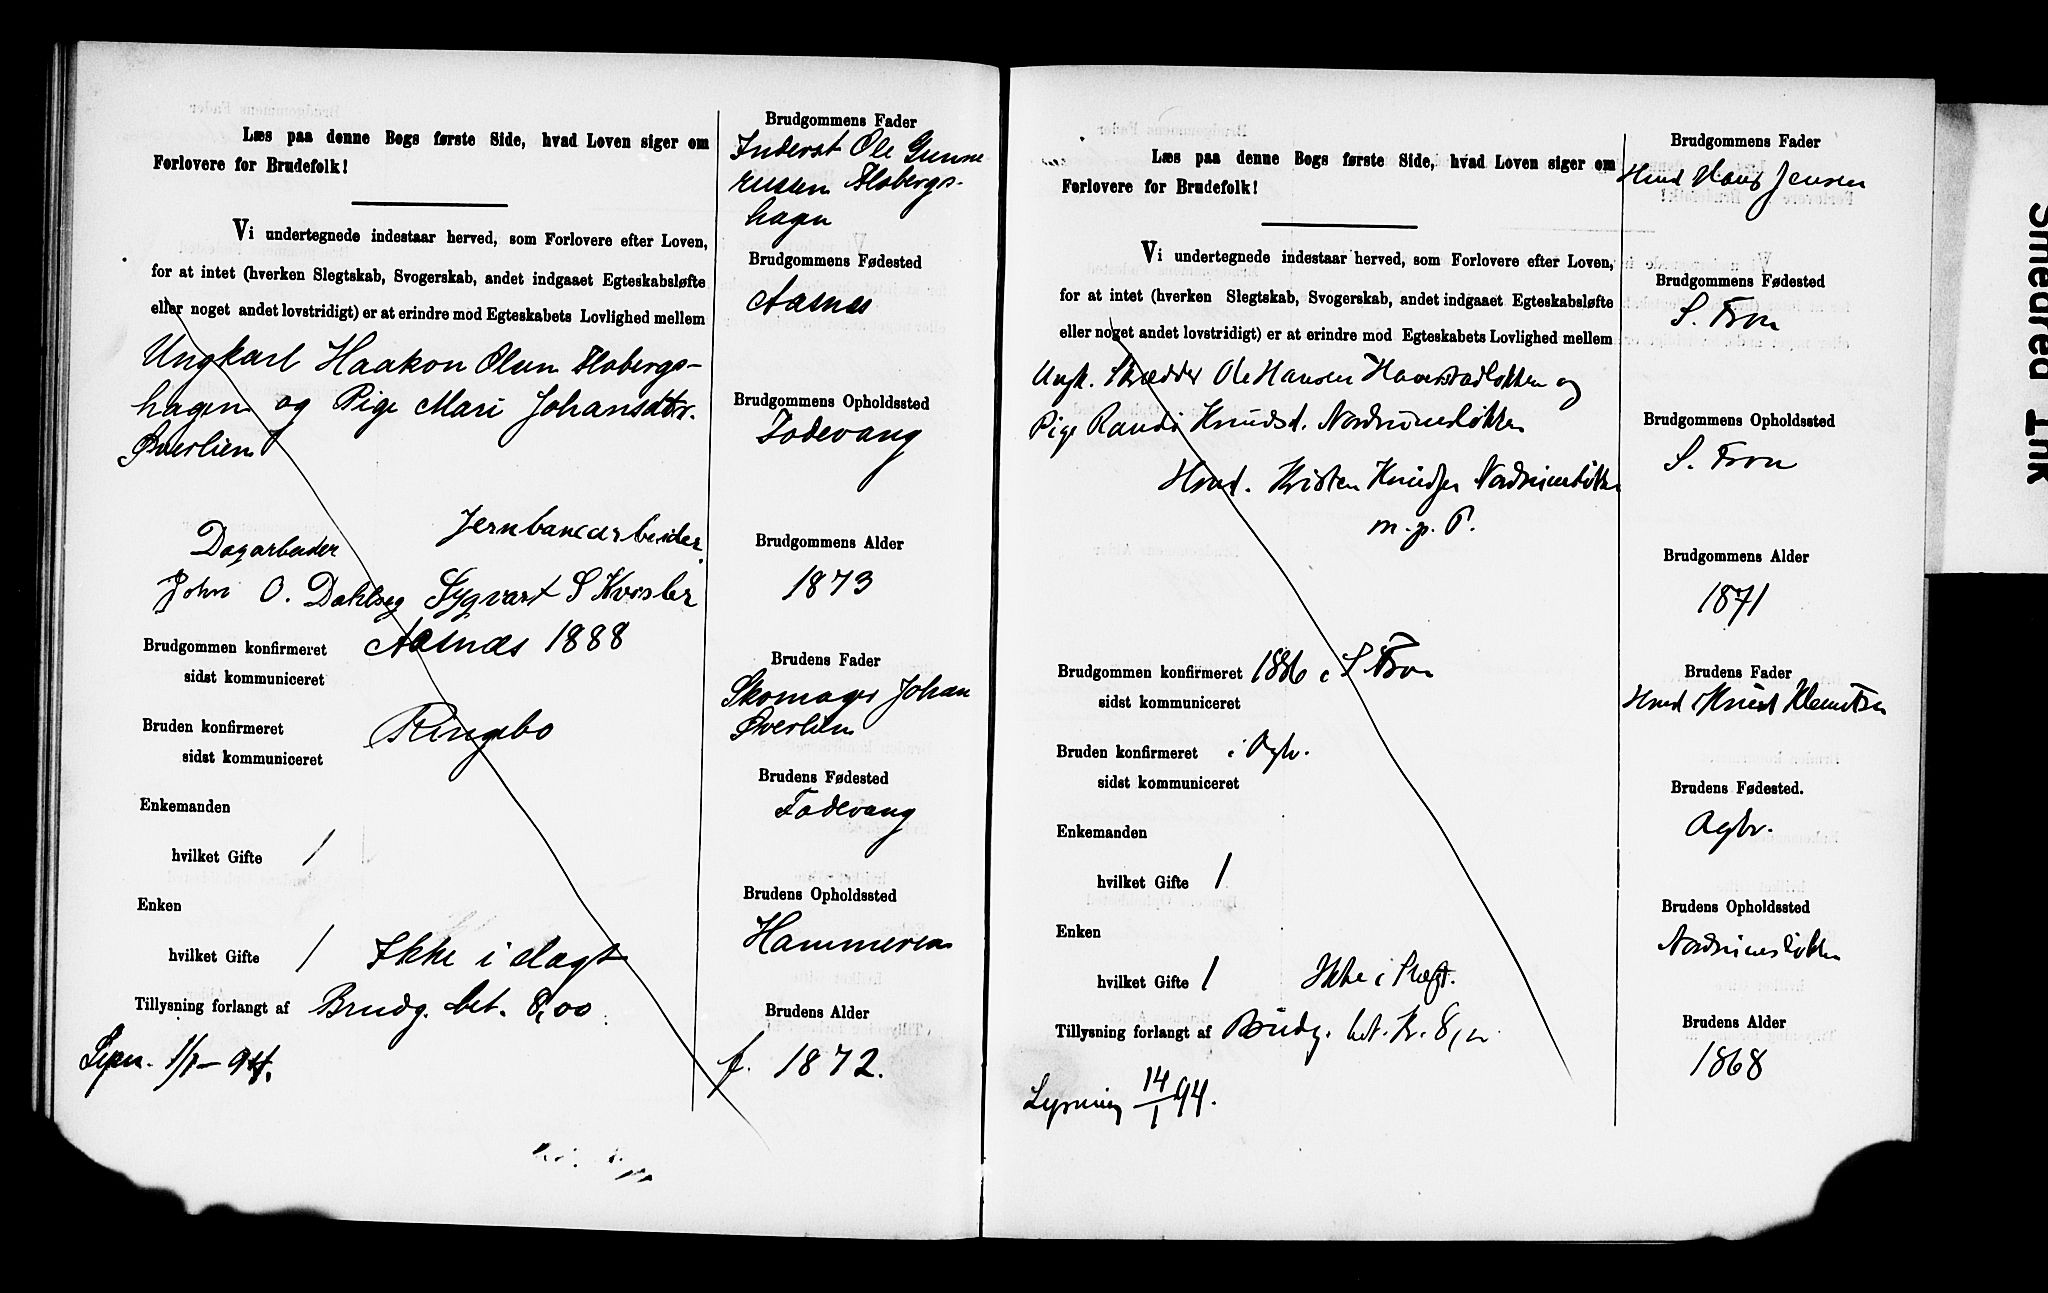 Læs paa denne Bogs første Side, hvad Loven siger om
Forlovere for Brudefolk!
Vi undertegnede indestaar herved, som Forlovere efter Loven,
for at intet (hverken Slegtskab, Svogerskab, andet indgaaet Egteskabsløfte
eller noget andet lovstridigt) er at erindre mod Egteskabets Lovlighed mellem
Ungkarl Haakon Olsen Flobergs-
hagen og Pige Mari Johansdtr.
Øverlien
Jernbanearbeider
Dagarbeider
John O. Dahlseg Sygvart S Kvisler
Brudgommen konfirmeret Aasnæs 1888
sidst kommuniceret
Bruden konfirmeret Ringebo
sidst kommuniceret
Enkemanden
hvilket Gifte 1
Enken
hvilket Gifte 1 Ikke i slægt
Tillysning forlangt af Brudg. bet. 8,00
Lysn. 1/1-94.
Brudgommens Fader
Inderst Ole Gunne
russen Flobergs-
hagen
Brudgommens Fødested
Aasnæs
Brudgommens Opholdssted
Fodevang
Brudgommens Alder
1873
Brudens Fader
Skomager Johan
Øverlien
Brudens Fødested
Fodevang
Brudens Opholdssted
Hammeren
Brudens Alder
f. 1872.
Læs paa denne Bogs første Side, hvad Loven siger om
Forlovere for Brudefolk!
Vi undertegnede indestaar herved, som Forlovere efter Loven,
for at intet (hverken Slegtskab, Svogerskab, andet indgaaet Egteskabsløfte
eller noget andet lovstridigt) er at erindre mod Egteskabets Lovlighed mellem
Ungk. Skrædder Ole Hansen Haverstadløkken og
Pige Randi Knudsd. Nordrumsløkken
Hmd. Kristen Knudsen Nordrumsløkken
m. p. P.
Brudgommen konfirmeret 1886 i S Fron
sidst kommuniceret
Bruden konfirmeret i Ogbr.
sidst kommuniceret
Enkemanden
hvilket Gifte 1
Enken
hvilket Gifte 1 Ikke i Slægt.
Tillysning forlangt af Brudg. bet. Kr. 8,00
Lysning 14/1 94.
Brudgommens Fader
Hmd Hans Jensen
Brudgommens Fødested
S. Fron
Brudgommens Opholdssted
S. Fron
Brudgommens Alder
1871
Brudens Fader
Hmd Knud Klemetsen
Brudens Fødested.
Ogbr.
Brudens Opholdssted
Nordrumsløkken
Brudens Alder
1868
Smeared Ink